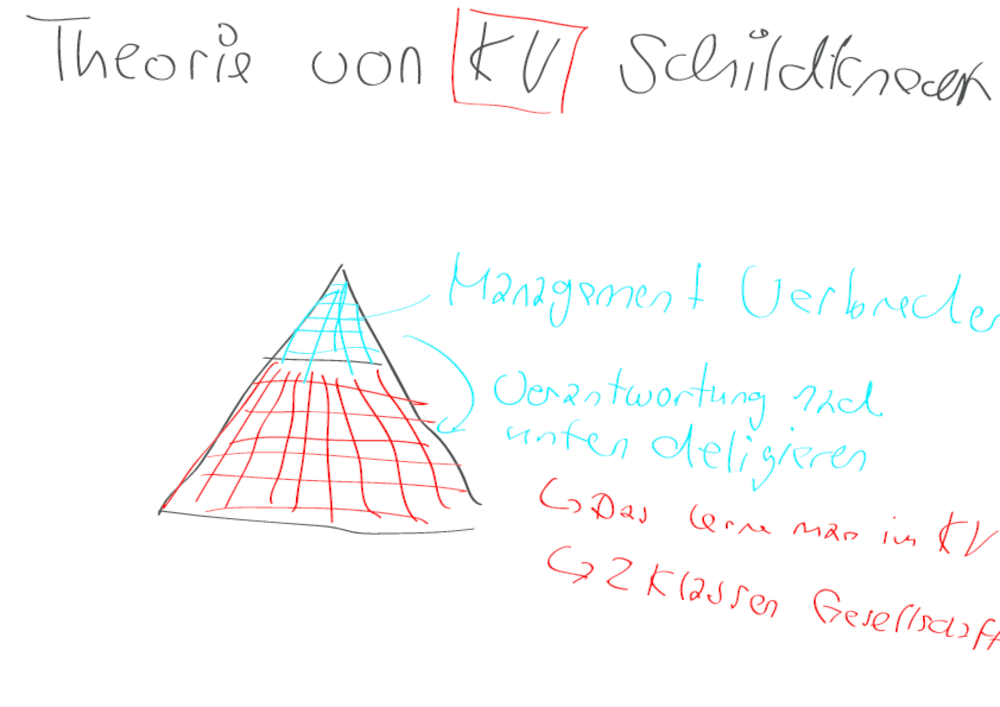 Theorie von KV Schildknecht
Management Verbrecher
Verantwortung nach
unten deligieren
↳ Das lerne man im KV
↳ 2 Klassen Gesellschaft